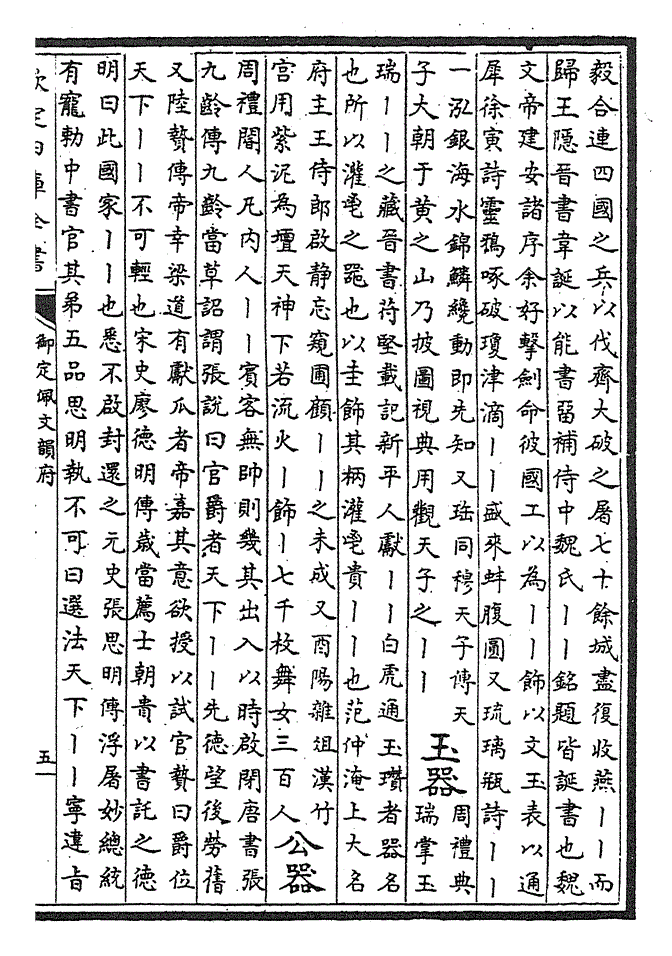 毅合連四國之兵以伐齊大破之屠七十餘城盡復收燕丨丨而
歸王隱晉書韋誕以能書留補侍中魏氏丨丨銘題皆誕書也魏
文帝建安諸序余好擊劍命彼國工以為丨丨飾以文玉表以通
犀徐寅詩靈鵶啄破瓊津滴丨丨盛來蚌腹圓又琉璃瓶詩丨丨
一泓銀海水錦鱗纔動即先知又珤同穆天子傳天
子大朝于黄之山乃披圖視典用觀天子之丨丨
玉器
周禮典
瑞掌玉
瑞丨丨之藏晉書苻堅載記新平人獻丨丨白虎通玉瓚者器名
也所以灌鬯之噐也以圭飾其柄灌鬯貴丨丨也范仲淹上大名
府主王侍郎啟静忘窺圃顧丨丨之未成又酉陽雜俎漢竹
宫用紫泥為壇天神下若流火丨飾丨七千枚舞女三百人
公器
周禮閽人凡内人丨丨賓客無帥則幾其出入以時啟閉唐書張
九齡傳九齡當草詔謂張說曰官爵者天下丨丨先德望後勞舊
又陸贄傳帝幸梁道有獻瓜者帝嘉其意欲授以試官贄曰爵位
天下丨丨不可輕也宋史廖德明傳歲當薦士朝貴以書託之德
明曰此國家丨丨也悉不啟封還之元史張思明傳浮屠妙總統
有寵勅中書官其弟五品思明執不可曰選法天下丨丨寧違旨
欽定四庫全書
御定佩文韻府
五